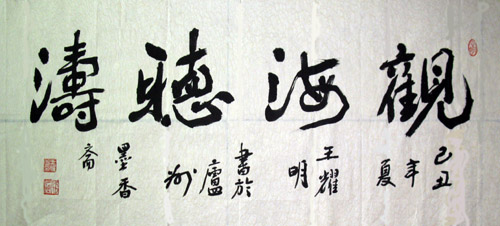 觀海聽濤
己丑年夏
王耀明
書於廬州
墨香齋